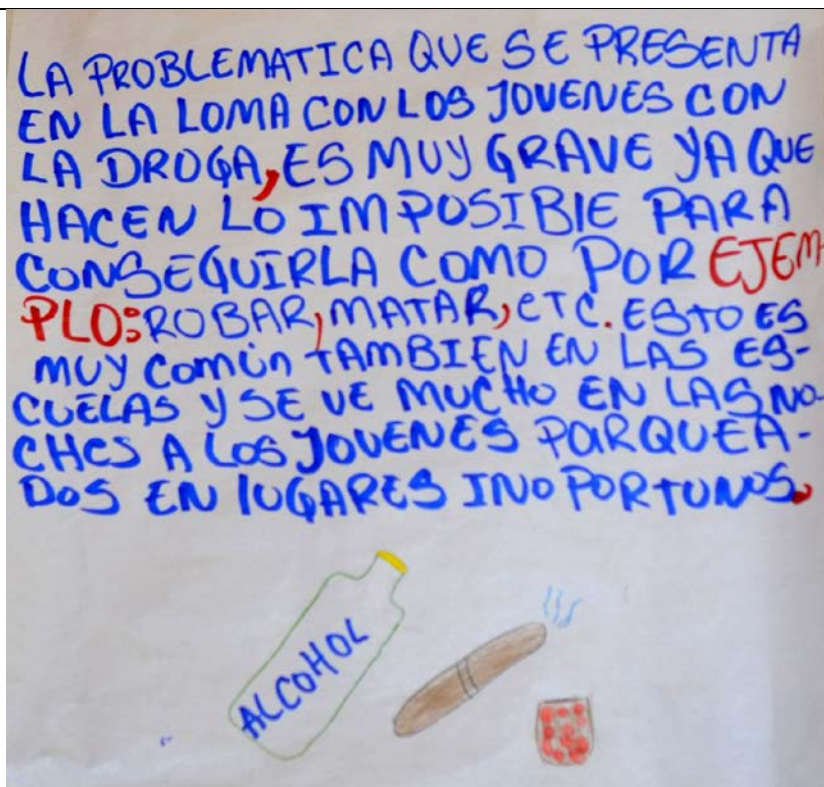 LA PROBLEMATICA QUE SE PRESENTA
EN LA LOMA CON LOS JOVENES CON
LA DROGA, ES MUY GRAVE YA QUE
HACEN LO IMPOSIBLE PARA
CONSEGUIRLA COMO POR EJEM-
PLO: ROBAR, MATAR, ETC. ESTO ES
MUY COMÚN TAMBIEN EN LAS ES-
CUELAS Y SE VE MUCHO EN LAS NO-
CHES A LOS JOVENES PARQUEA-
DOS EN LUGARES INOPORTUNOS.
ALCOHOL